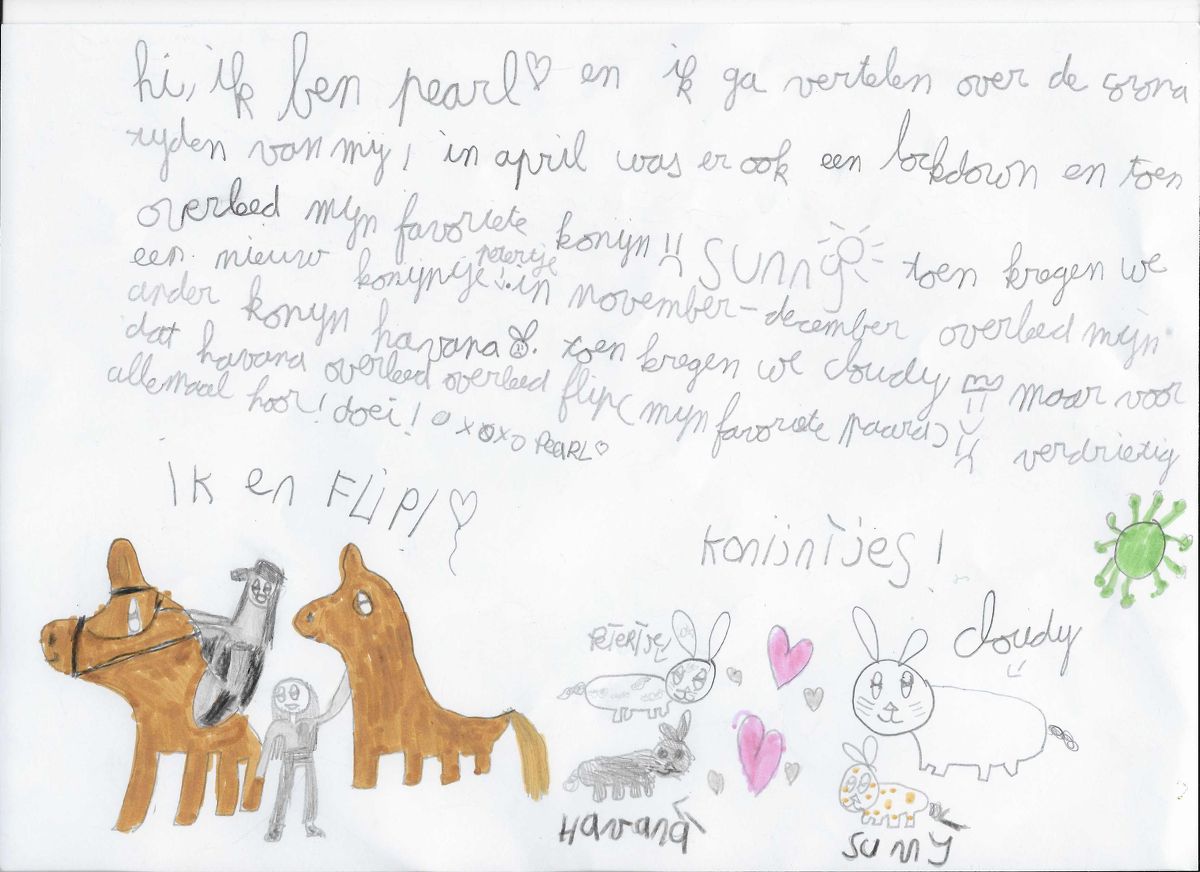 hi, ik ben pearl♡ en ik ga vertelen over de corona
tyden van my! in april was er ook een lockdown en toen
overleed mijn favoriete konyn!! SUNNy toen kregen we
een nieuw konijntje petertje!. in november-december overleed mijn
ander konyn havana. toen kregen we cloudy maar voor
dat havana overleed overleed flip (mijn favoriete paard) verdrietig
allemaal hoor! doei! oxoxo PEARL♡
IK en FLIP!♡
konijntjes!
PETERTJE
cloudy
HAVANA
SUNNY